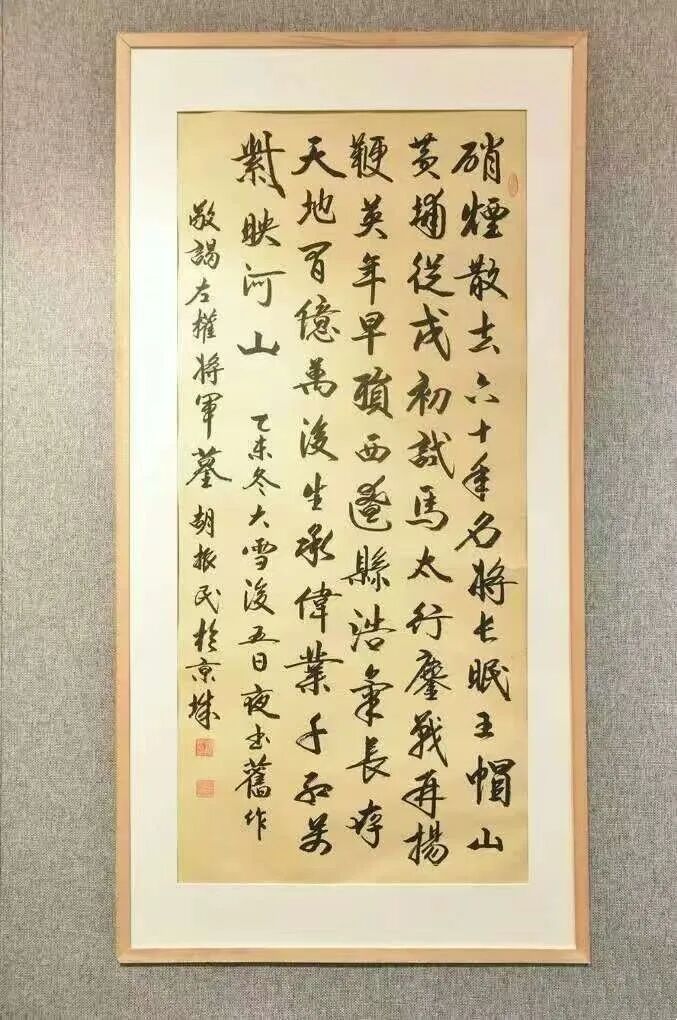 硝煙散去六十年名将长眠王帽山
黄埔從戎初試馬太行鏖戰再揚
鞭英年早殞西遼縣浩氣長存
天地間億萬後生承偉業千紅萬
紫映河山
乙未冬大雪後五日夜书舊作
敬謁左權将軍墓胡振民於京城